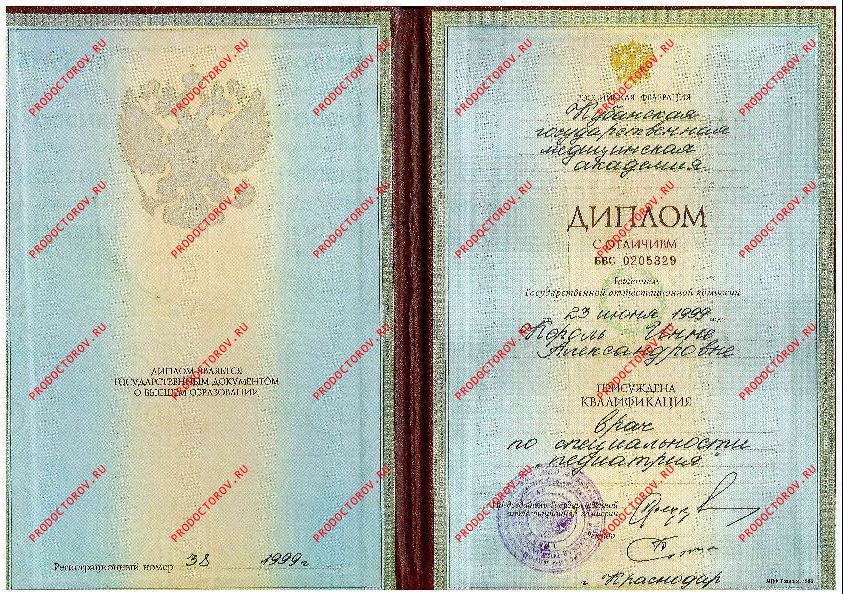 ДИПЛОМ ЯВЛЯЕТСЯ
ГОСУДАРСТВЕННЫМ ДОКУМЕНТОМ
О ВЫСШЕМ ОБРАЗОВАНИИ
Регистрационный номер 38 1999г
РОССИЙСКАЯ ФЕДЕРАЦИЯ
Кубанская
государственная
медицинская
академия
ДИПЛОМ
С ОТЛИЧИЕМ
БВС 0205329
Решением
Государственной аттестационной комиссии
23 июня 1999
Король Инне
Александровне
ПРИСУЖДЕНА
КВАЛИФИКАЦИЯ
врач
по специальности
"педиатрия"
Председатель Государственной
аттестационной комиссии
г. Краснодар
PRODOCTOROV.RU